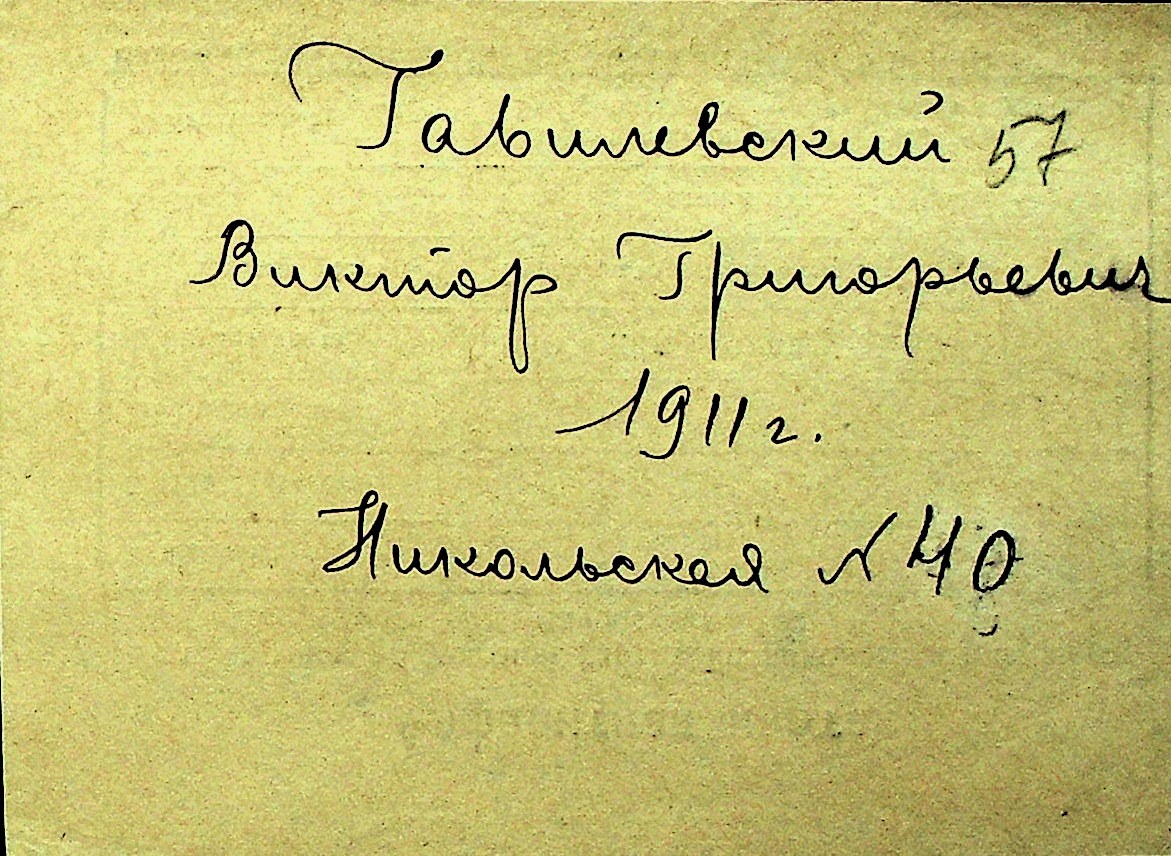 Гавилевский 57
Виктор Григорьевич
1911 г.
Никольская № 40